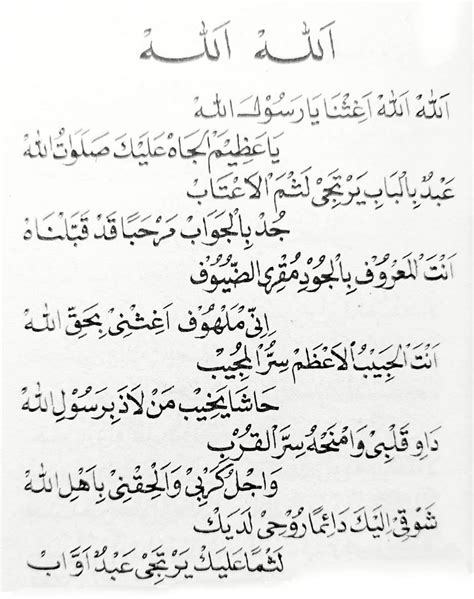 اَللهْ اَللهْ
اَللهْ اَللهْ اَغِثْنَا يَارَسُوْلَ اللهْ
يَاعَظِيْمَ الْجَاهْ عَلَيْكَ صَلَوَاتُ اللهْ
عَبْدٌ بِالْبَابِ يَرْتَجِىْ لَثْمَ الْاَعْتَابْ
جُدْ بِالْجَوَابْ مَرْحَبًا قَدْ قَبَّلْنَاهْ
اَنْتَ الْمَعْرُوْفْ بِالْجُوْدِ مُقْرِى الضُّيُوْفْ
اِنِّىْ مَلْهُوْفْ اَغِثْنِىْ بِحَقِّ اللهْ
اَنْتَ الْحَبِيْبُ الْاَعْظَمْ سِرُّ الْمُجِيْبْ
حَاشَا يَخِيْبْ مَنْ لَاذَ بِرَسُوْلِ اللهْ
دَاوِ قَلْبِىْ وَامْنَحْهُ سِرَّ الْقُرْبِ
وَاجْلُ كَرْبِىْ وَالْحِقْنِىْ بِاَهْلِ اللهْ
شَوْقِىْ اِلَيْكَ دَائِمًا رُوْحِىْ لَدَيْكْ
لَثْمًا عَلَيْكْ يَرْتَجِىْ عَبْدٌ اَوَّابْ